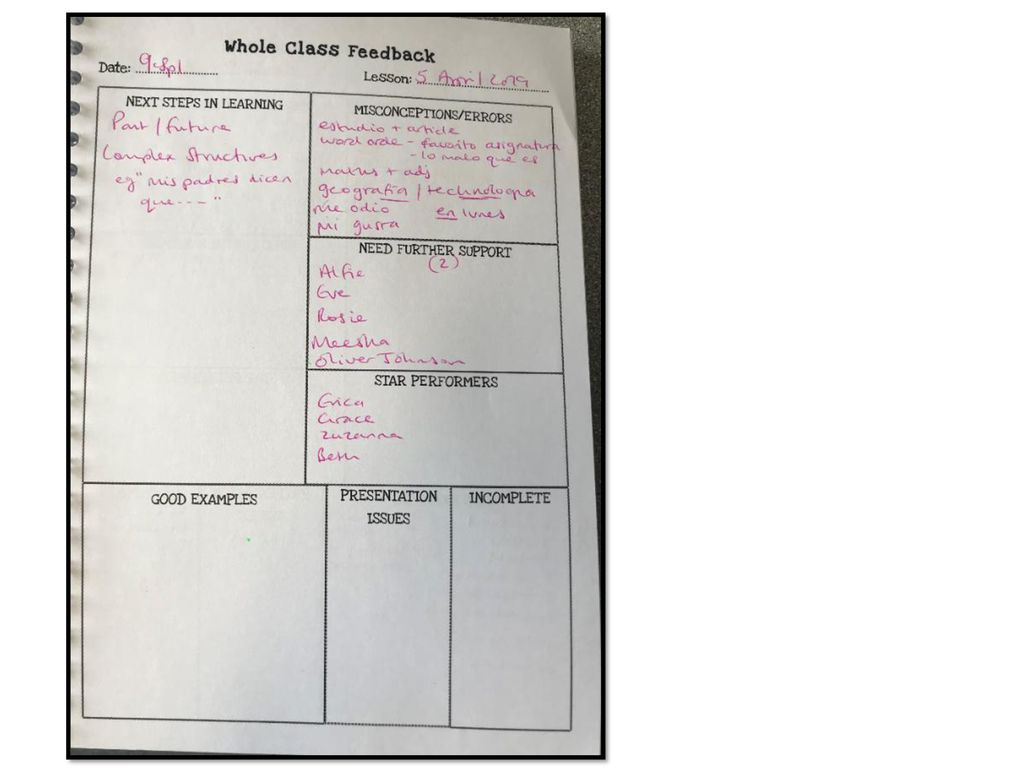 Whole Class Feedback
Date: 9.Sp1
Lesson: 5 April 2019
NEXT STEPS IN LEARNING
Past / future
Complex Structures
eg "mis padres dicen
que--- "
MISCONCEPTIONS/ERRORS
estudio + article
word orde - favorito asignatura
- lo malo que es
maths + adj
geografía / technologia
me odio en lunes
Mi gusta
NEED FURTHER SUPPORT
(2)
Alfie
Eve
Rosie
Meesha
Oliver Johnson
STAR PERFORMERS
Erica
Grace
Zuzanna
Beth
GOOD EXAMPLES
PRESENTATION
ISSUES
INCOMPLETE